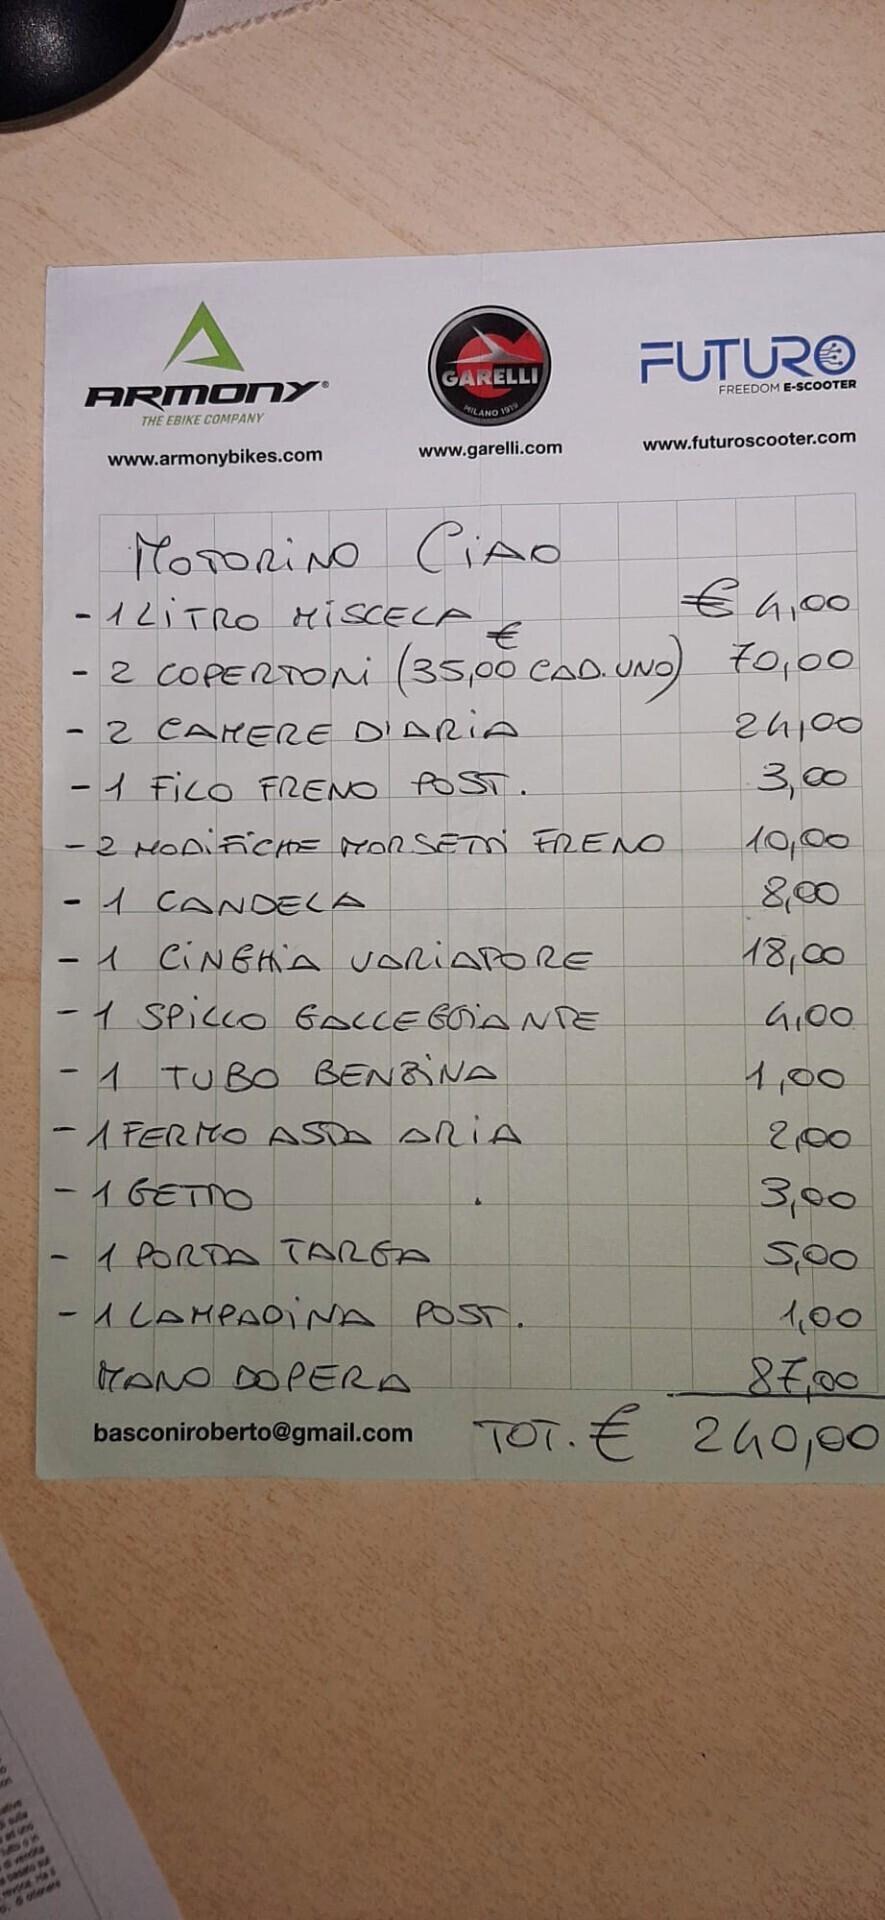 ARMONY®
THE EBIKE COMPANY
www.armonybikes.com
GARELLI
MILANO 1919
www.garelli.com
FUTURO
FREEDOM E-SCOOTER
www.futuroscooter.com
MOTORINO CIAO
- 1 LITRO MISCELA € 4,00
- 2 COPERTONI (35,00 € CAD. UNO) 70,00
- 2 CAMERE D'ARIA 24,00
- 1 FILO FRENO POST. 3,00
- 2 MODIFICHE MORSETTI FRENO 10,00
- 1 CANDELA 8,00
- 1 CINGHIA VARIATORE 18,00
- 1 SPILLO GALLEGGIANTE 4,00
- 1 TUBO BENZINA 1,00
- 1 FERMO ASTA ARIA 2,00
- 1 GETTO 3,00
- 1 PORTA TARGA 5,00
- 1 LAMPADINA POST. 1,00
MANO DOPERA 87,00
basconiroberto@gmail.com TOT. € 240,00